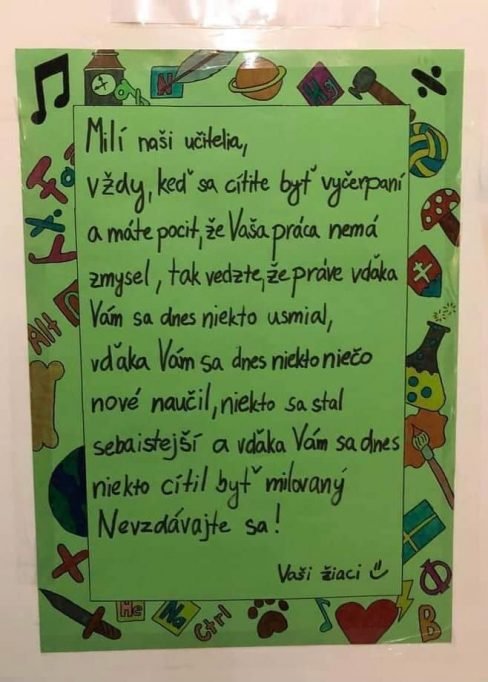 Milí naši učitelia,
vždy, keď sa cítite byť vyčerpaní
a máte pocit, že Vaša práca nemá
zmysel, tak vedzte, že práve vďaka
Vám sa dnes niekto usmial,
vďaka Vám sa dnes niekto niečo
nové naučil, niekto sa stal
sebaistejší a vďaka Vám sa dnes
niekto cítil byť milovaný
Nevzdávajte sa!
Vaši žiaci
N
Hg
Alt
He
No
Ctrl
B